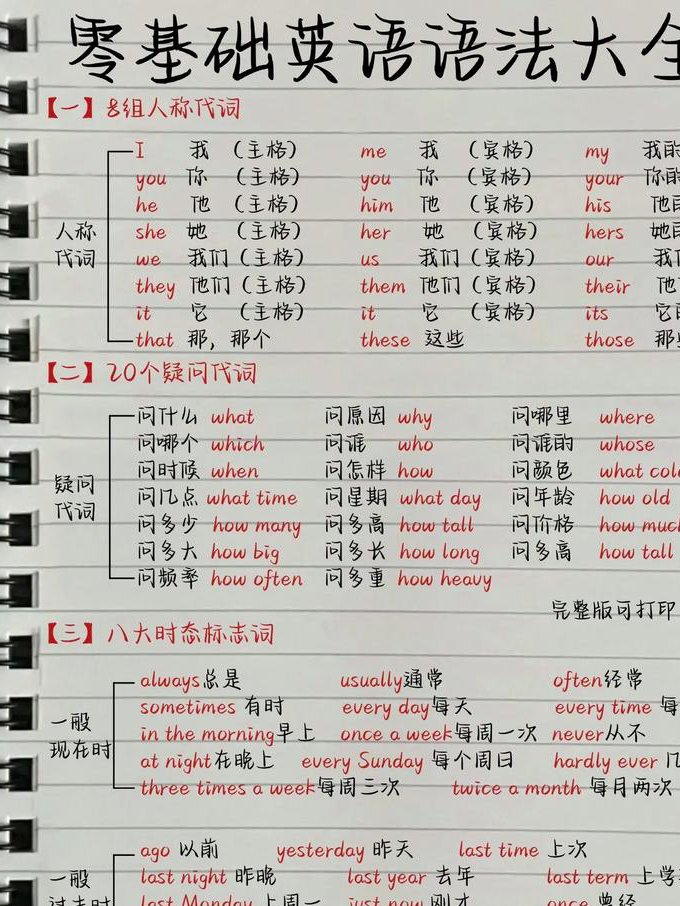 零基础英语语法大全
【一】8组人称代词
人称代词
I 我 （主格） me 我 （宾格） my 我的
you 你 （主格） you 你 （宾格） your 你的
he 他 （主格） him 他 （宾格） his 他
she 她 （主格） her 她 （宾格） hers 她
we 我们（主格） us 我们（宾格） our 我们
they 他们（主格） them 他们（宾格） their 他
it 它 （主格） it 它 （宾格） its 它
that 那，那个 these 这些 those 那些
【二】20个疑问代词
疑问代词
问什么 what 问原因 why 问哪里 where
问哪个 which 问谁 who 问谁的 whose
问时候 when 问怎样 how 问颜色 what colo
问几点 what time 问星期 what day 问年龄 how old
问多少 how many 问多高 how tall 问价格 how muc
问多大 how big 问多长 how long 问多高 how tall
问频率 how often 问多重 how heavy
完整版可打印
【三】八大时态标志词
一般现在时
always总是 usually通常 often经常
sometimes 有时 every day每天 every time 每
in the morning早上 once a week每周一次 never从不
at night在晚上 every Sunday 每个周日 hardly ever 几
three times a week每周三次 twice a month 每月两次
一般过去时
ago 以前 yesterday 昨天 last time 上次
last night 昨晚 last year 去年 last term 上学
last Monday 上周一 just now 刚才 once 曾经